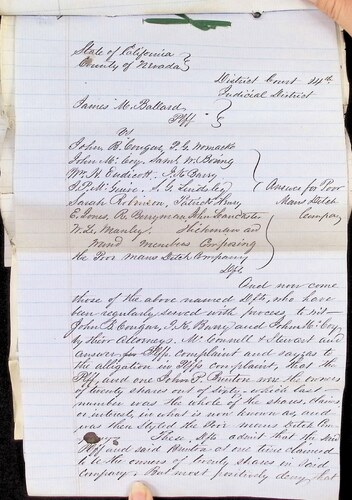 State of California
County of Nevada
District Court 14th
Judicial District
James M. Ballard
Plff
vs
John R. Congar, P. G. Womack
John McCoy, Saml W. Boring
Wm. H. Endicott, J. K. Barry
J. P. McGuire, A. G. Lindsley
Answer for Poor
Sarah Robinson, Patrick
Mans Ditch
E. Jones, R. Berryman, John Lancaster
Company
W. G. Manley. Hickman and
Wand members Composing
the Poor mans Ditch Company
Defts
And now come
those of the above named Defts, who have
been regularly served with process to wit
John R Congar, J. K. Barry and John McCoy
by their Attorneys, McConnell & Stewart and
answer Plffs complaint and say as to
the allegation in Plffs complaint, that the
Plff, and one John P. were the owners
of twenty shares out of sixty, which last
number was the whole of the shares, claims
or interests in what is now known as, and
was then styled the Poor mans Ditch Com
These Defts admit that the said
Plff and said at one time claimed
to be the owners of twenty shares in said
Company. But most positively deny that